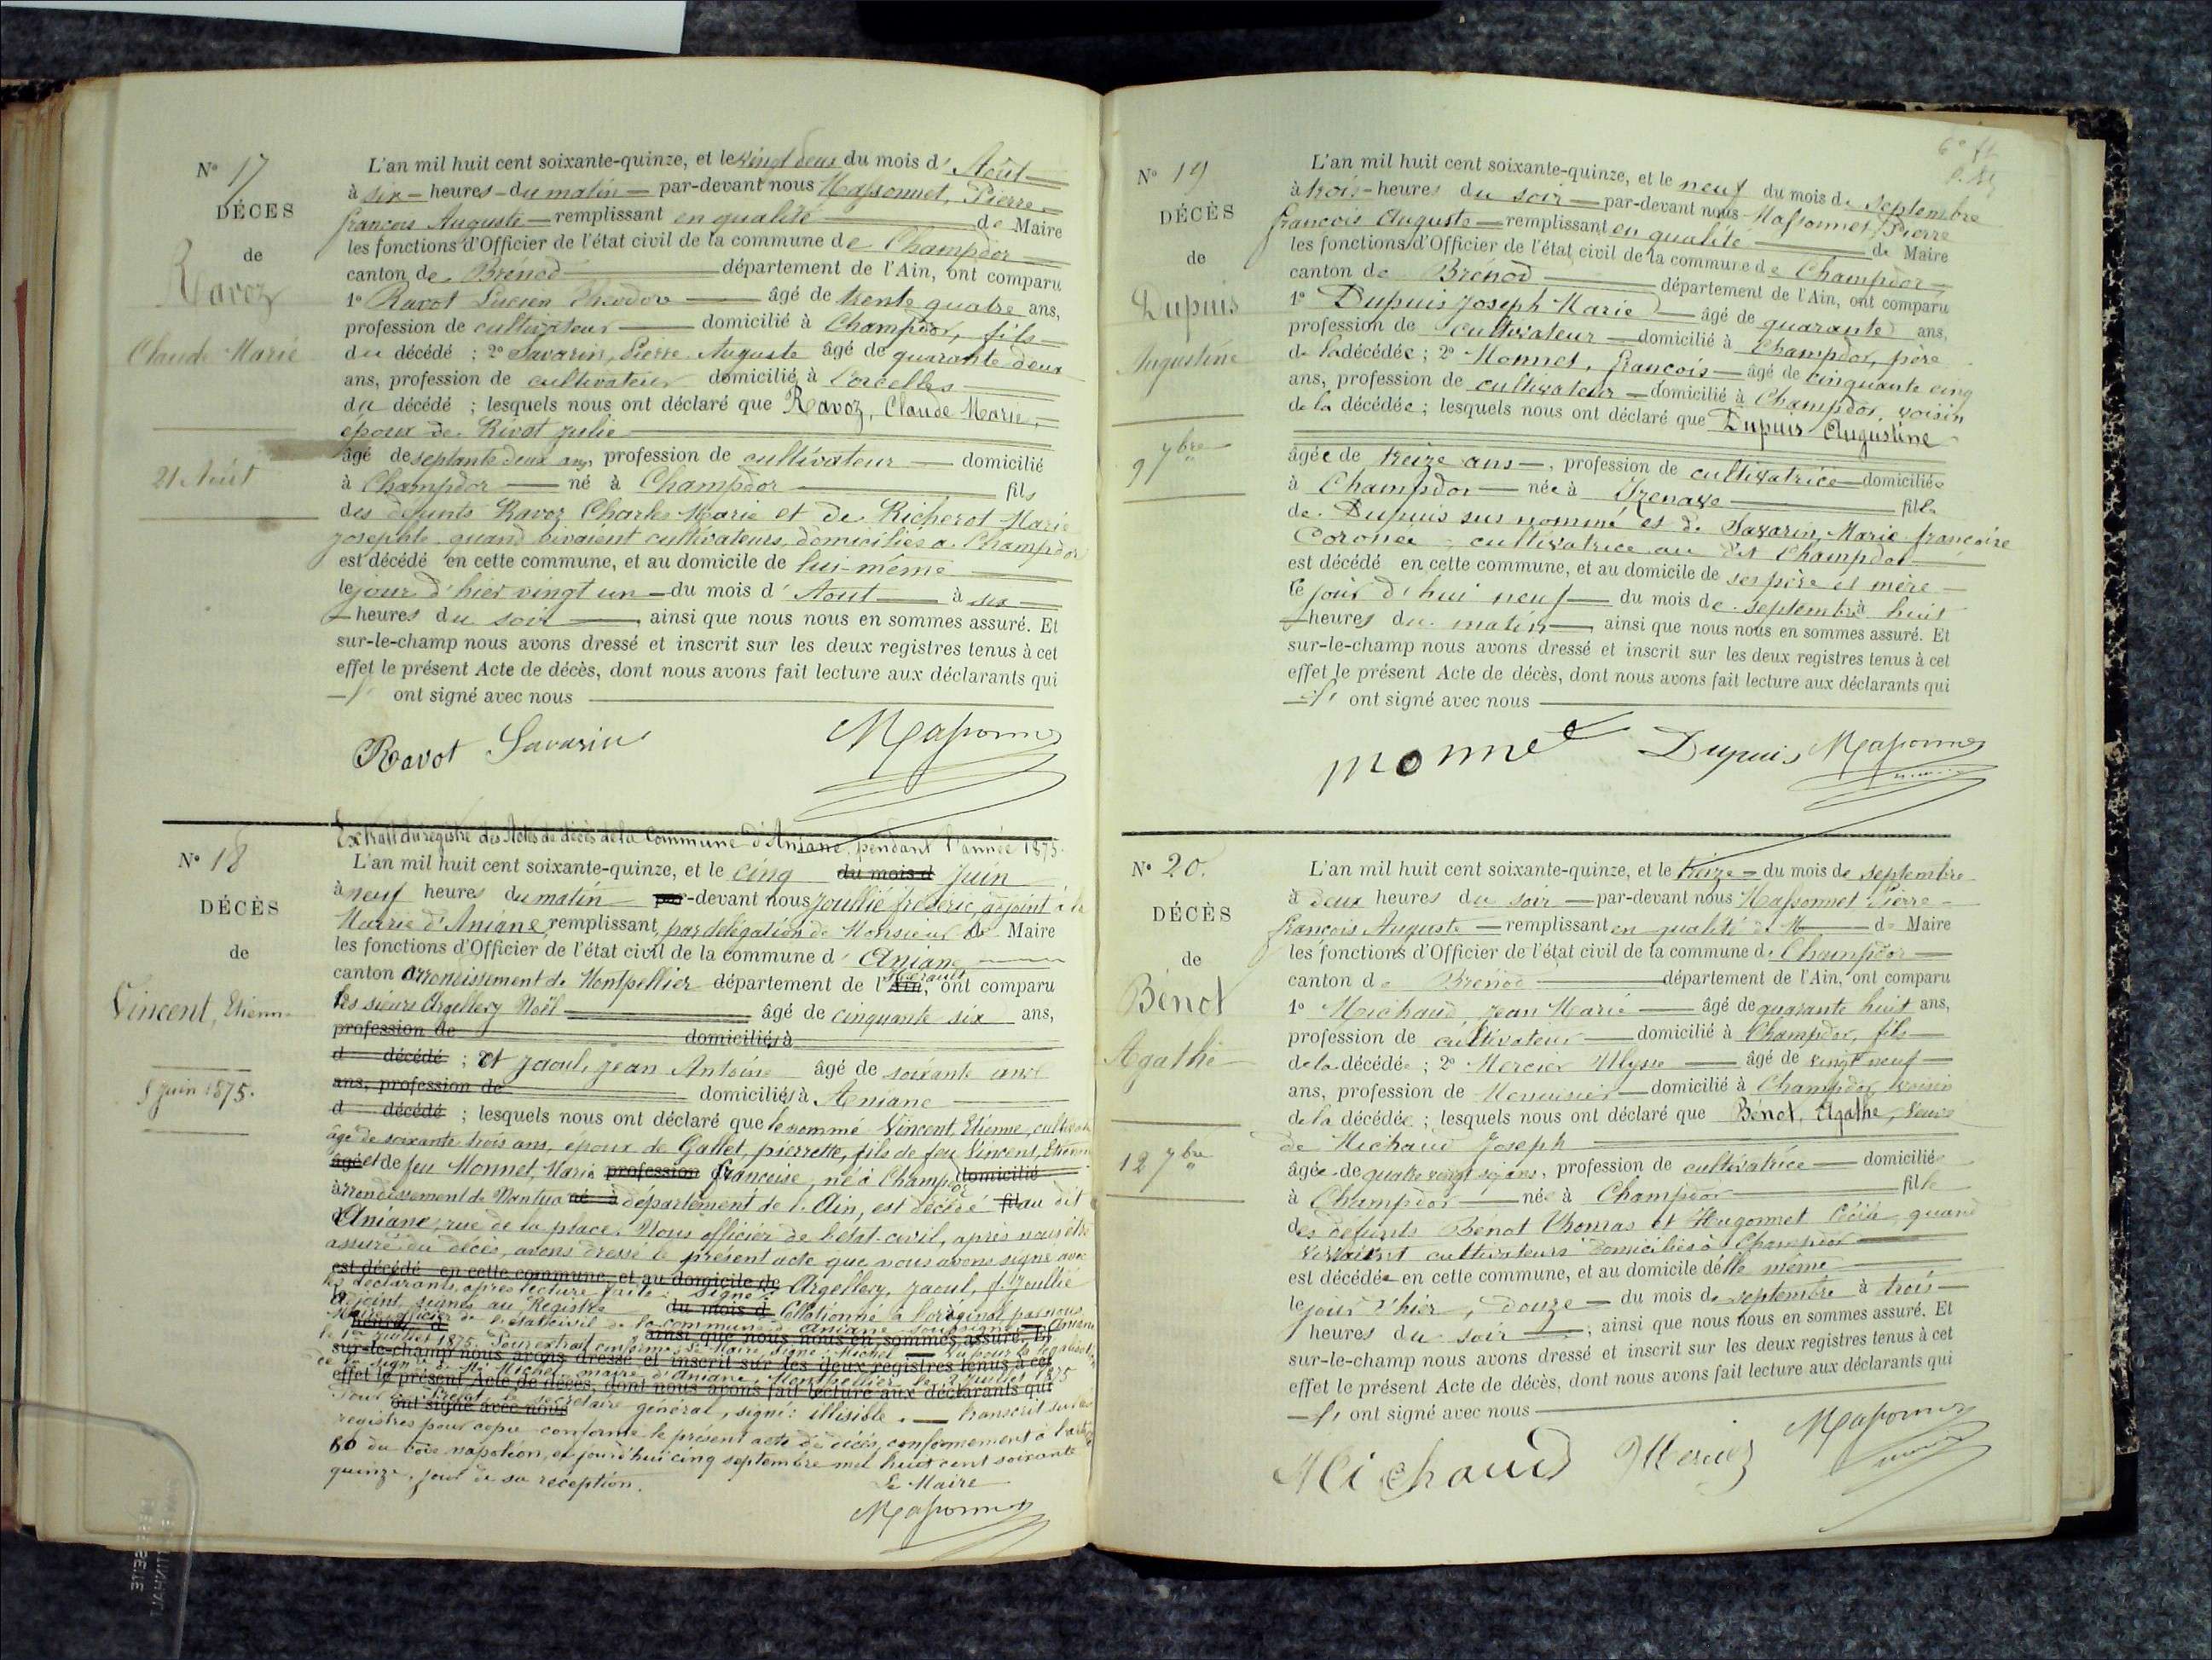 N° 17
DÉCES
de
Ravoz
Claude Marie
21 Août
L'an mil huit cent soixante-quinze, et le vingt deux du mois d' Août
à six heures du matin par-devant nous Massonnet, Pierre
françois Auguste remplissant en qualité de Maire
les fonctions d'Officier de l'état civil de la commune de Champdor
canton de Brénod département de l'Ain, ont comparu
1° Ravot Lucien Théodore âgé de trente quatre ans,
profession de cultivateur domicilié à Champdor, fils
du décédé ; 2° Savarin, Pierre Auguste âgé de quarante deux
ans, profession de cultivateur domicilié à Corcelles
du décédé ; lesquels nous ont déclaré que Ravoz, Claude Marie,
époux de Rivat Julie
âgé de septante deux ans, profession de cultivateur domicilié
à Champdor né à Champdor fils
des défunts Ravoz Charles Marie et de Richerot Marie
Josephte quand vivaient cultivateurs, domiciliés à Champdor
est décédé en cette commune, et au domicile de lui-même
le jour d'hier vingt un du mois d' Aout à six
heures du soir, ainsi que nous nous en sommes assuré. Et
sur-le-champ nous avons dressé et inscrit sur les deux registres tenus à cet
effet le présent Acte de décès, dont nous avons fait lecture aux déclarants qui
ont signé avec nous
Ravot Savarin Massonnet
N° 18
DÉCÈS
de
Vincent, Etienne
5 Juin 1875.
Extrait du registre des Actes de décès de la Commune d'Aniane, pendant l'année 1875.
L'an mil huit cent soixante-quinze, et le cinq du mois d Juin
à neuf heures du matin par-devant nous Joullié fréderic, adjoint à la
Mairie d'Aniane, remplissant par délégation de Monsieur le Maire
les fonctions d'Officier de l'état civil de la commune d' Aniane
canton arrondissement de Montpellier département de l'Ain, Hérault ont comparu
les sieurs Argellery Noël âgé de cinquante six ans,
profession de domiciliés à
d décédé ; et Jaoul, Jean Antoine âgé de soixante ans
ans, profession de domiciliés à Aniane
d décédé ; lesquels nous ont déclaré que le nommé Vincent, Etienne, cultivateur
âgé de soixante trois ans, époux de Gallet, pierrette, fils de feu Vincent, Etienne
âgé et de feu Monnet, Marie profession françoise, né à Champdor domicilié
arrondissement de Nantua né à département de l'Ain, est décédé fil au dit
Aniane, rue de la place. Nous officier de l'état-civil, après nous être
assuré du décès, avons dressé le présent acte que nous avons signé avec
est décédé en cette commune, et au domicile de
les déclarants, après lecture faite. Signé : Argellery, Jaoul, f. Joullié
adjoint, signés au Registre du mois d Collationné à l'original par nous
Maire officier de l'état civil de la commune d'Aniane soussigné Aniane
ainsi que nous nous en sommes assuré. Et
le 1er Juillet 1875. Pour extrait conforme Le Maire, signé : Michel Vu pour la légalisation
sur-le-champ nous avons dressé et inscrit sur les deux registres tenus à cet
de la signature de Mr Michel maire d'Aniane. Montpellier le 2 Juillet 1875
effet le présent Acte de décès, dont nous avons fait lecture aux déclarants qui
Pour le Préfet le secrétaire général, signé : illisible. transcrit sur les
ont signé avec nous
registres pour copie conforme le présent acte de décès, conformément à l'article
80 du Code napoléon, aujourd'hui cinq septembre mil huit cent soixante
quinze, jour de sa réception.
Le Maire
Massonnet
N° 19
DÉCÈS
de
Dupuis
Augustine
9 7bre
L'an mil huit cent soixante-quinze, et le neuf du mois de Septembre
à trois heures du soir par-devant nous Massonnet, Pierre
françois Auguste remplissant en qualité de Maire
les fonctions d'Officier de l'état civil de la commune de Champdor
canton de Brénod département de l'Ain, ont comparu
1° Dupuis Joseph Marie âgé de quarante ans,
profession de cultivateur domicilié à Champdor, père
de la décédée ; 2° Monnet, françois âgé de cinquante cinq
ans, profession de cultivateur domicilié à Champdor, voisin
de la décédée ; lesquels nous ont déclaré que Dupuis Augustine
âgée de treize ans, profession de cultivatrice domiciliée
à Champdor née à Izenave fille
de Dupuis sus nommé et de Savarin, Marie françoise
Coronée, cultivatrice au dit Champdor
est décédé en cette commune, et au domicile de ses père et mère
le jour d'hui neuf du mois de septembre à huit
heures du matin, ainsi que nous nous en sommes assuré. Et
sur-le-champ nous avons dressé et inscrit sur les deux registres tenus à cet
effet le présent Acte de décès, dont nous avons fait lecture aux déclarants qui
ont signé avec nous
monnet Dupuis Massonnet
N° 20.
DÉCÈS
de
Bénot
Agathe
12 7bre
L'an mil huit cent soixante-quinze, et le treize du mois de septembre
à deux heures du soir par-devant nous Massonnet Pierre
françois Auguste remplissant en qualité de M de Maire
les fonctions d'Officier de l'état civil de la commune de Champdor
canton de Brénod département de l'Ain, ont comparu
1° Michaud, Jean Marie âgé de quarante huit ans,
profession de cultivateur domicilié à Champdor, fils
de la décédée ; 2° Mercier Ulysse âgé de vingt neuf
ans, profession de Menuisier domicilié à Champdor, voisin
de la décédée ; lesquels nous ont déclaré que Bénot, Agathe, veuve
de Michaud Joseph
âgée de quatre vingt six ans, profession de cultivatrice domiciliée
à Champdor née à Champdor fille
des défunts Bénot Thomas et Hugonnet Cécile quand
vivaient cultivateurs domiciliés à Champdor
est décédée en cette commune, et au domicile d'elle même
le jour d'hier, douze du mois de septembre à trois
heures du soir, ainsi que nous nous en sommes assuré. Et
sur-le-champ nous avons dressé et inscrit sur les deux registres tenus à cet
effet le présent Acte de décès, dont nous avons fait lecture aux déclarants qui
ont signé avec nous
Michaud Mercier Massonnet